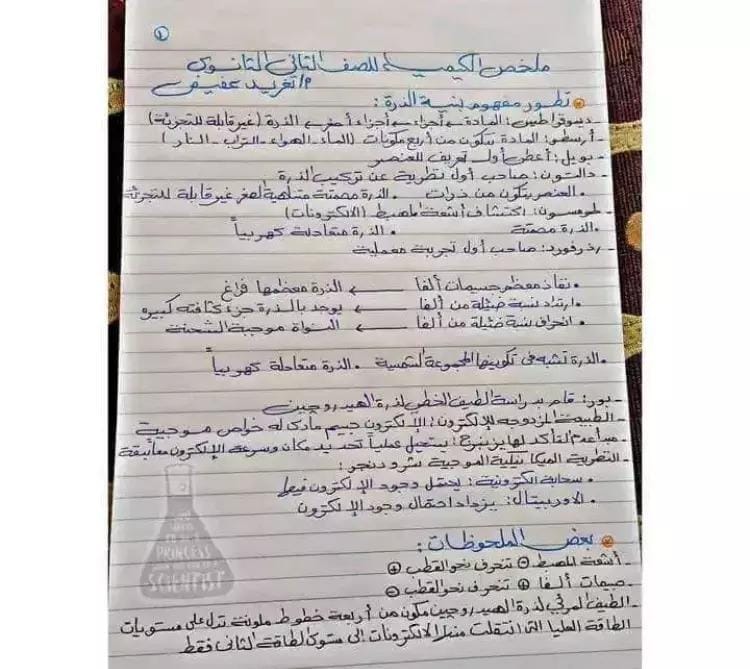 ①
ملخص الكيمياء للصف الثاني الثانوي
م/ تغريد عفيفي
تطور مفهوم بنية الذرة:
ديموقراطيس: المادة ← أجزاء ← أجزاء أصغر ← الذرة (غير قابلة للتجزئة)
- أرسطو: المادة تتكون من أربع مكونات (الماء - الهواء - التراب - النار)
- بويل: أعطى أول تعريف للعنصر
- دالتون: صاحب أول نظرية عن تركيب الذرة
• العنصر يتكون من ذرات • الذرة مصمتة متناهية الصغر غير قابلة للتجزئة
- طومسون: اكتشاف أشعة المهبط (الالكترونات)
• الذرة مصمتة • الذرة متعادلة كهربياً
- رذرفورد: صاحب أول تجربة معملية
• نفاذ معظم جسيمات ألفا ← الذرة معظمها فراغ
• ارتداد نسبة ضئيلة من ألفا ← يوجد بالذرة جزء كثافته كبيرة
• انحراف نسبة ضئيلة من ألفا ← النواة موجبة الشحنة
• الذرة تشبه في تكوينها المجموعة الشمسية • الذرة متعادلة كهربياً
- بور: قام بدراسة الطيف الخطي لذرة الهيدروجين
- الطبيعة المزدوجة للإلكترون: الإلكترون جسيم مادي له خواص موجية
- مبدأ عدم التأكد لهايزنبرج: يستحيل عملياً تحديد مكان وسرعة الإلكترون معاً بدقة
- النظرية الميكانيكية الموجية لشرودنجر:
• سحابة الكترونية: يحتمل وجود الإلكترون فيها
• الاوربيتال: يزداد احتمال وجود الإلكترون
بعض الملحوظات:
- أشعة المهبط ⊖ تنحرف نحو القطب ⊕
- جسيمات ألفا ⊕ تنحرف نحو القطب ⊖
- الطيف المرئي لذرة الهيدروجين مكون من أربعة خطوط ملونة تدل على مستويات
الطاقة العليا التي انتقلت منها الالكترونات إلى مستوى الطاقة الثاني فقط
PRINCESS
SCIENTIST